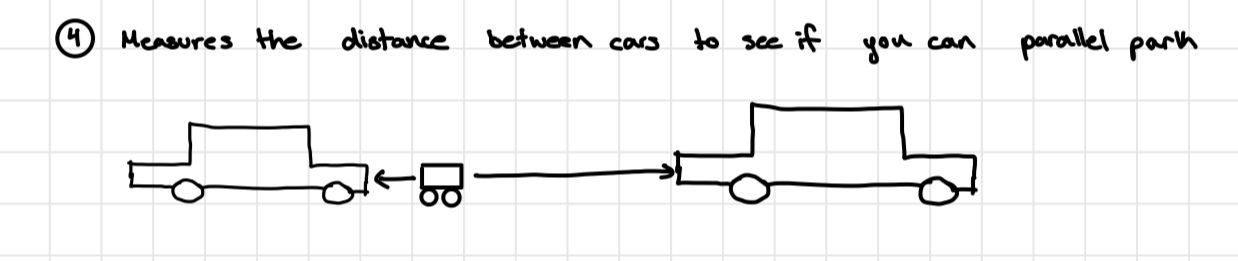 ④ Measures the distance between cars to see if you can parallel park